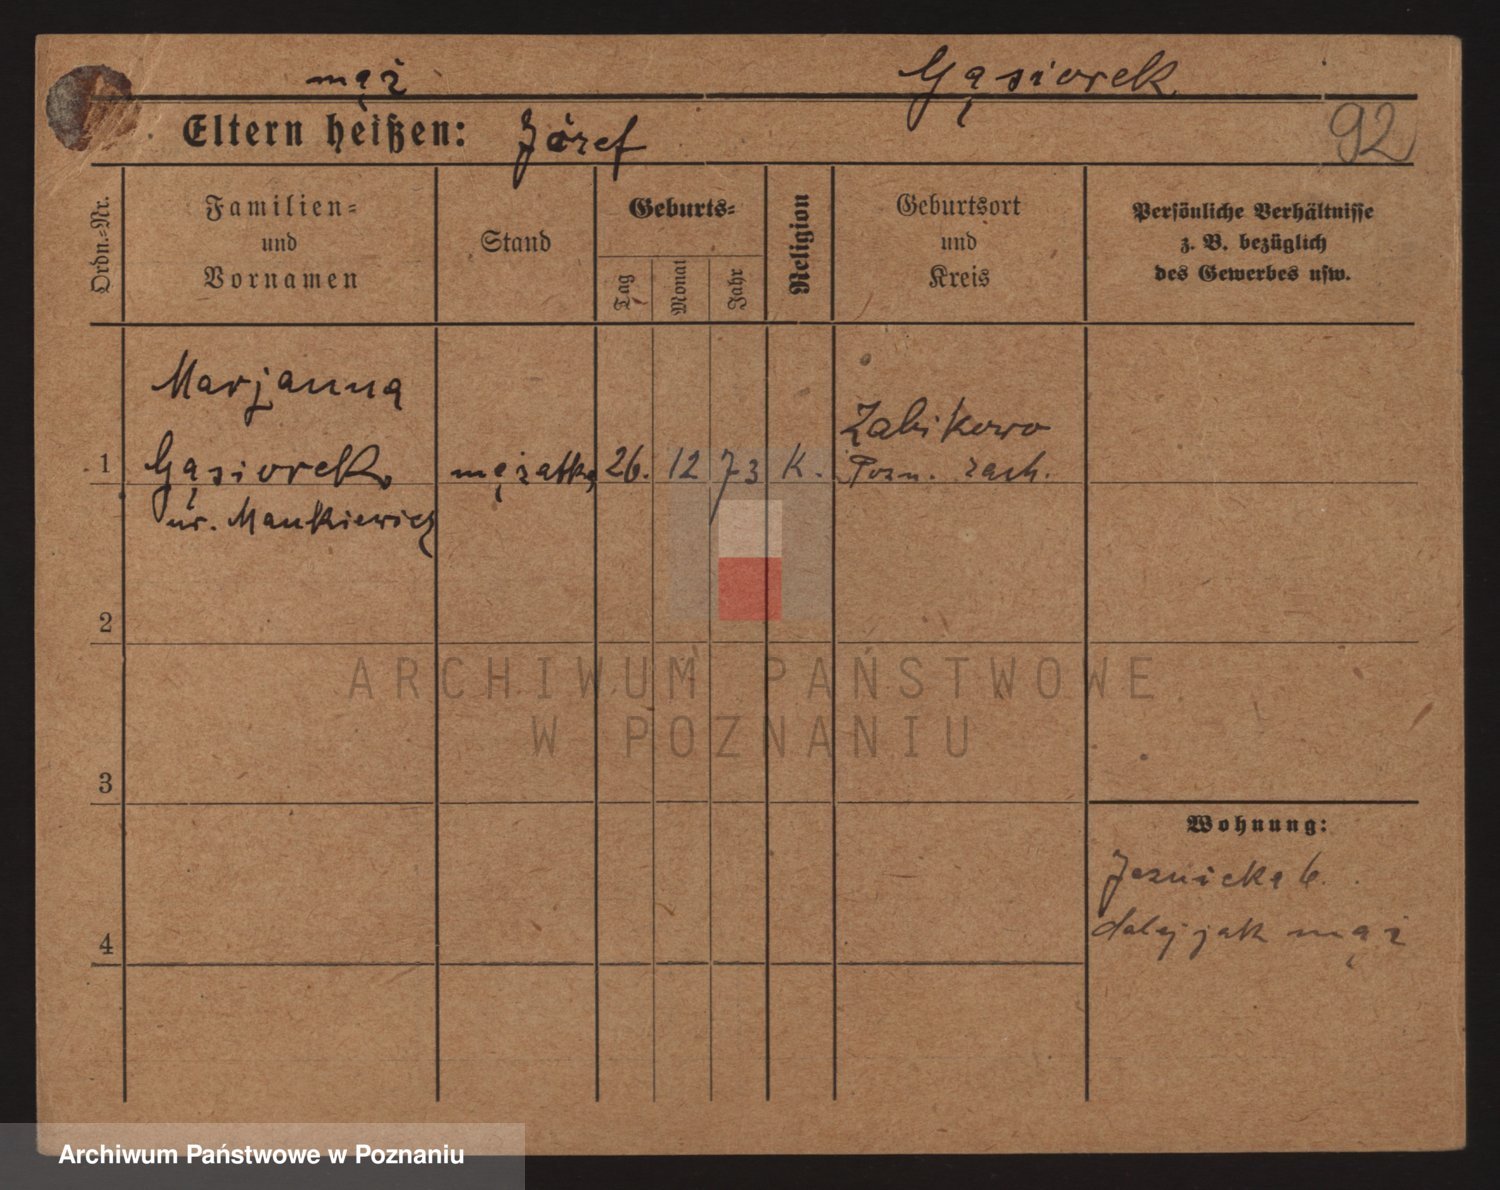 mąż Gąsiorek
Eltern heißen: Józef 92
Ordn.=Nr.
Familien=
und
Vornamen
Stand
Geburts=
Tag
Monat
Jahr
Religion
Geburtsort
und
Kreis
Persönliche Verhältnisse
z. B. bezüglich
des Gewerbes usw.
Marjanna
Żabikowo
1 Gąsiorek mężatka 26. 12 73 K. Pozn. zach.
ur. Mankiewicz
2
ARCHIWUM PAŃSTWOWE
W POZNANIU
3
Wohnung:
Jeżnicka 6.
4 dalej jak mąż
Archiwum Państwowe w Poznaniu